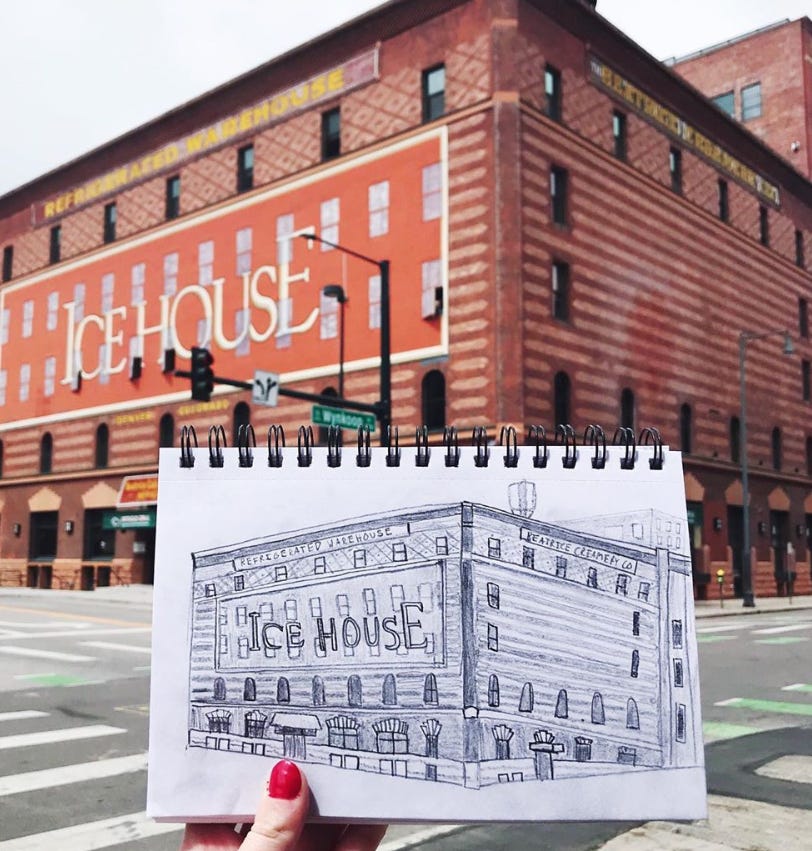 REFRIGERATED WAREHOUSE
THE BEATRICE CREAMERY CO
ICE HOUSE
DENVER COLORADO
Wynkoop
REFRIGERATED WAREHOUSE
BEATRICE CREAMERY CO
ICE HOUSE